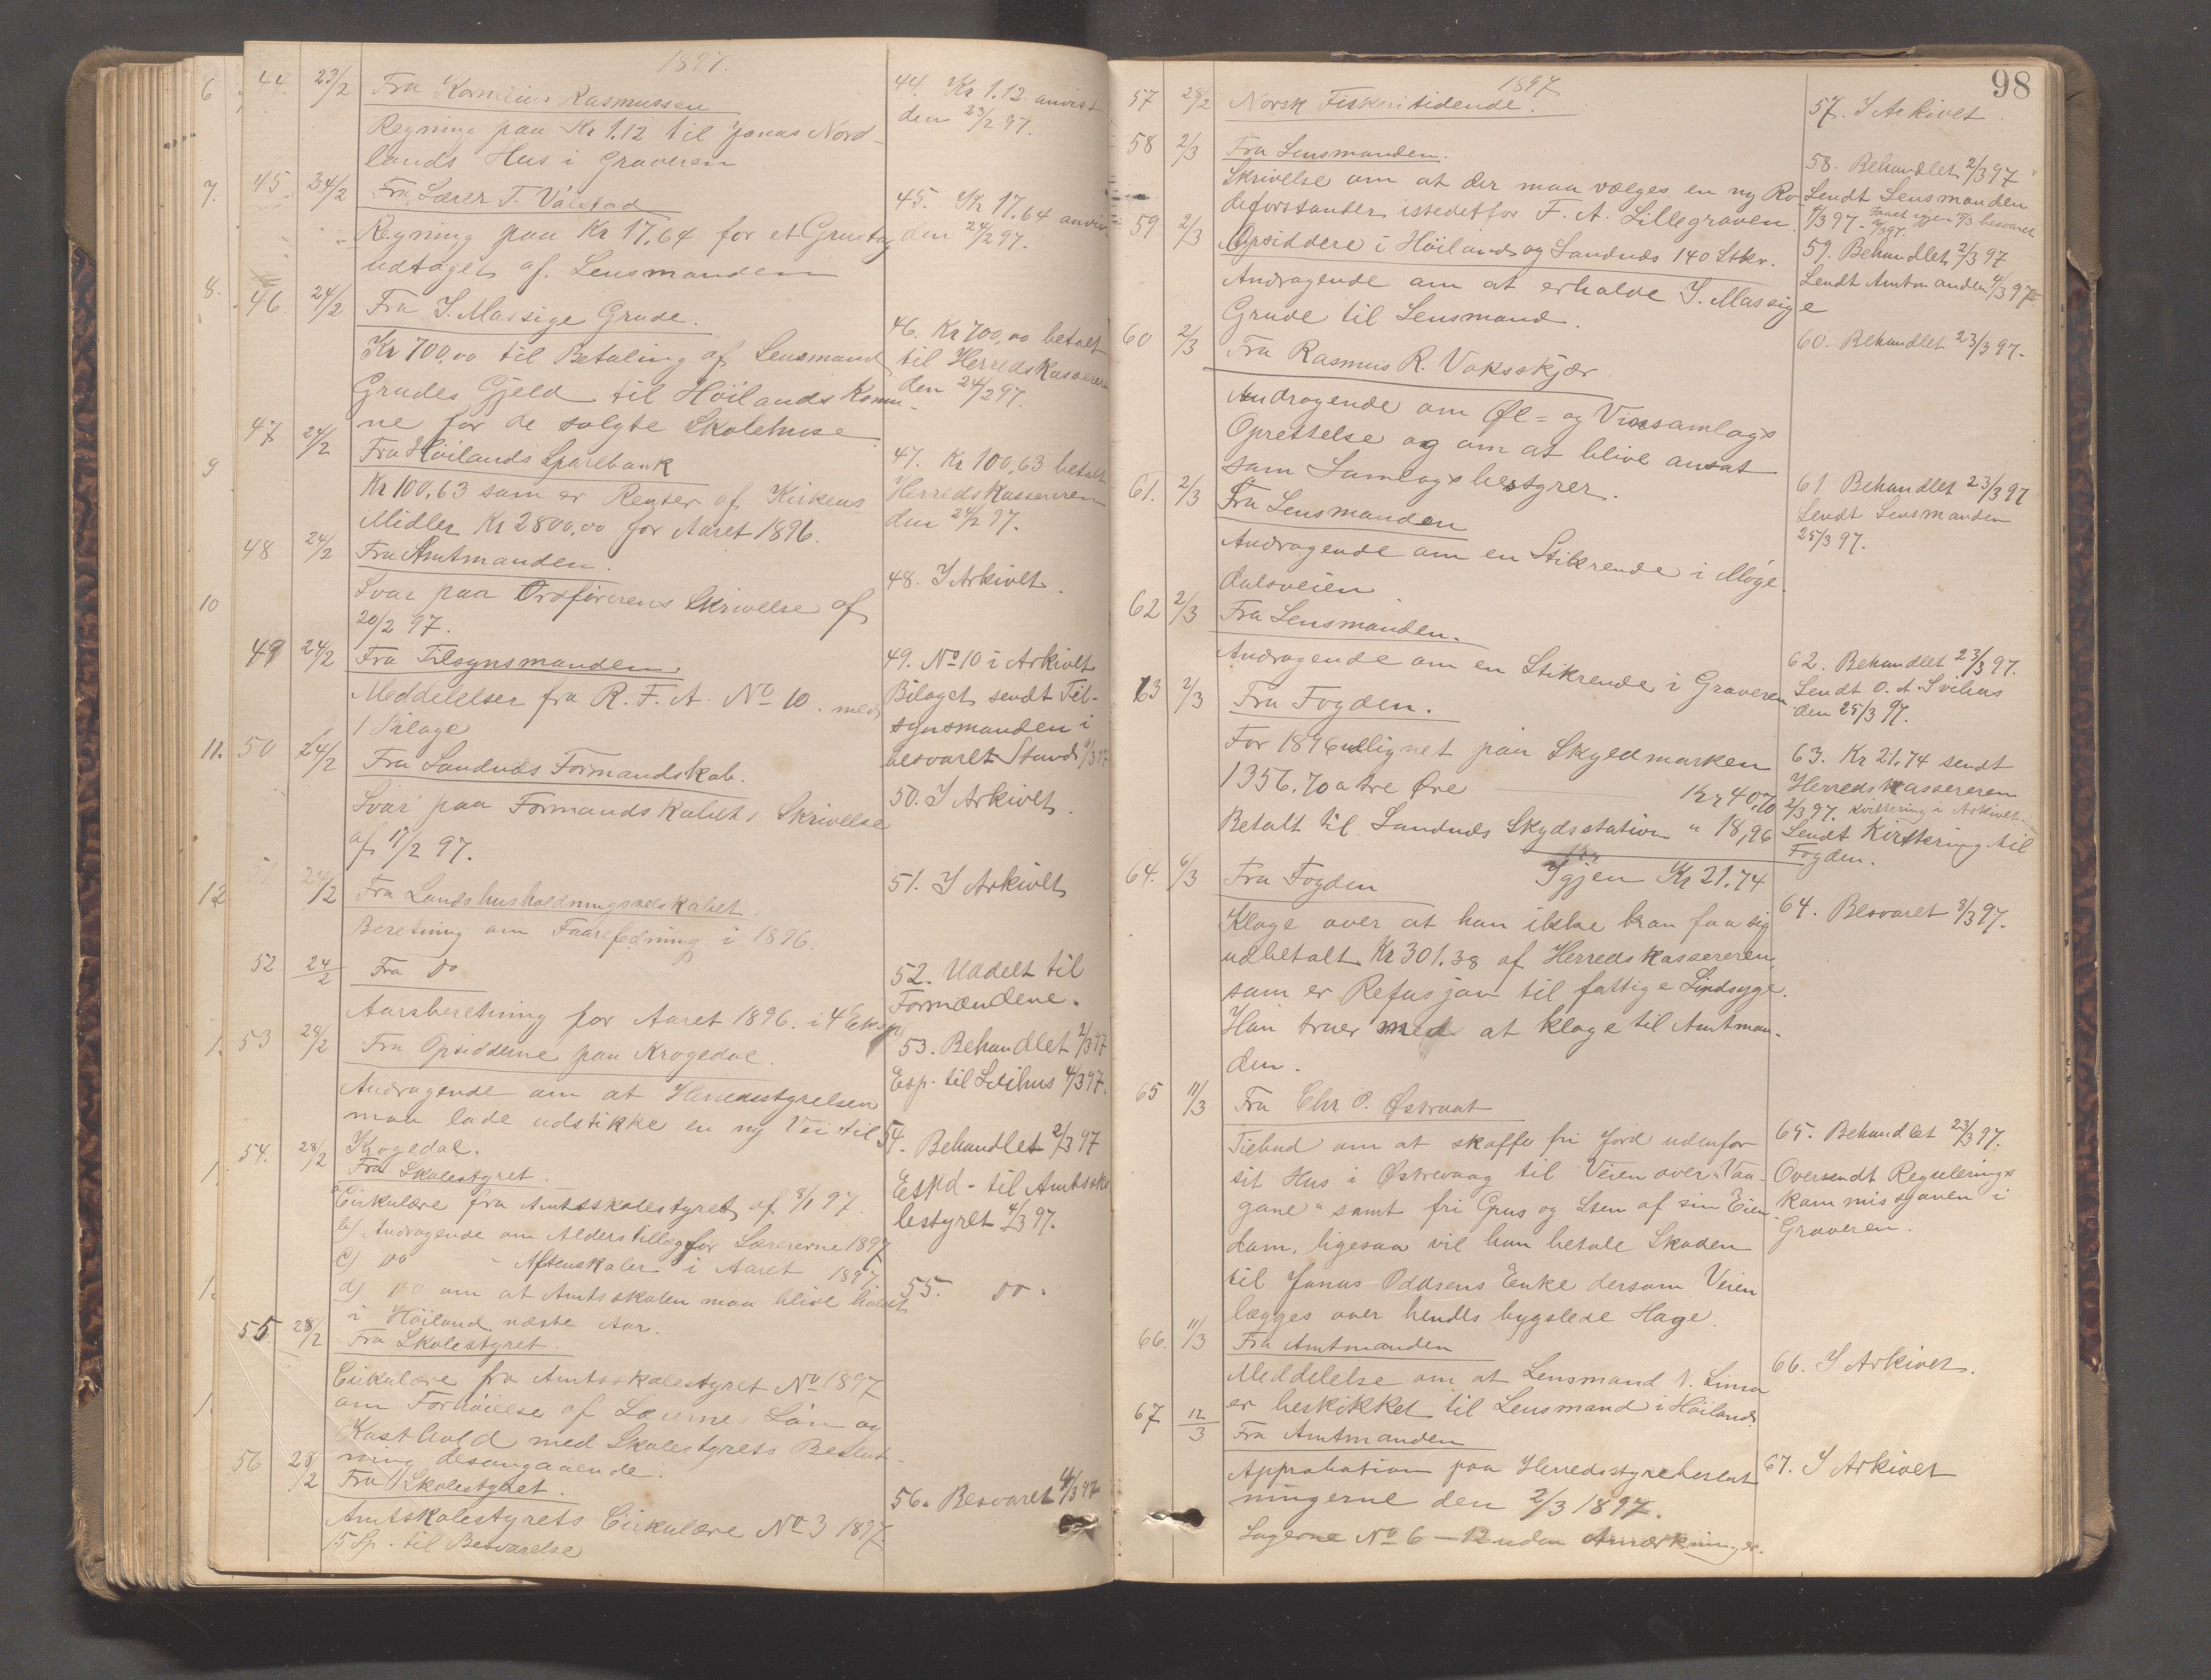 1897.
44. 23/2 Fra Kornelius Rasmussen
Regning paa Kr 1.12 til Jonas Nord-
lands Hus i Graveren
44. Kr 1.12 anvist
den 23/2 97.
45. 24/2 Fra Lærer T. Valstad
Regning paa Kr 17,64 for et
udtaget af Lensmanden
45. Kr 17,64 anvist
den 24/2 97.
46. 24/2 Fra I. Massige Grude.
Kr 700,00 til Betaling af Lensmand
Grudes Gjeld til Höilands Kommu-
ne for de solgte Skolehuse
46. Kr 700,00 betalt
til Herredskassereren
den 24/2 97.
47 24/2 Fra Höilands Sparebank
Kr 100,63 som er Renter af Kirkens
Midler Kr 2800,00 for Aaret 1896.
47. Kr 100,63 betalt
Herredskassereren
den 24/2 97.
48 24/2 Fra Amtmanden.
Svar paa Ordförerens Skrivelse af
20/2 97.
48. I Arkivet.
49 24/2 Fra Tilsynsmanden.
Meddelelser fra R. F. A. No 10. med
1 Bilage
49. No 10 i Arkivet
Bilaget sendt Til-
synsmanden i
besvaret Stand 9/3 97
11. 50 24/2 Fra Sandnæs Formandskab.
Svar paa Formandskabets Skrivelse
af 17/2 97.
50. I Arkivet.
12 51 24/2 Fra Landshusholdningsselskabet.
Beretning om Faarefedning i 1896.
51. I Arkivet
52 24/2 Fra Do
Aarsberetning for Aaret 1896. i 4 Eksp
52. Uddelt til
Formændene.
53 28/2 Fra Opsidderne paa Krogedal.
Andragende om at Herredsstyrelsen
maa lade udstikke en ny Vei til
Krogedal.
53. Behandlet 2/3 97
Esp. til Svihus 4/3 97.
54. 28/2 Fra Skolestyret.
a) Cirkulære fra Amtsskolestyret af 8/1 97.
b) Andragende om Alderstillæg for Lærerne 1897
c) Do - Aftenskoler i Aaret 1897.
d) Do om at Amtsskolen maa blive holdt
i Höiland næste Aar.
54. Behandlet 2/3 97
Espd - til Amtssko
lestyret 4/3 97.
55. 28/2 Fra Skolestyret.
Cirkulære fra Amtsskolestyret No 1897
om Forhöielse af Lærernes Lön og
Kosthold med Skolestyrets Beslut-
ning desangaaende.
55. Do.
56 28/2 Fra Skolestyret.
Amtskolestyrets Cirkulære No 3 1897.
5 Sp. til Besvarelse
56. Besvaret 4/3 97
98
1897
57 28/2 Norsk Fiskeritidende.
57. I Arkivet.
58 2/3 Fra Lensmanden.
Skrivelse om at der maa vælges en ny Ro-
deforstander istedetfor F. A. Lillegraven.
58. Behandlet 2/3 97
Sendt Lensmanden
59 2/3 Opsiddere i Höiland og Sandnæs 140 Stkr.
Andragende om at erholde I. Massige
Grude til Lensmand.
59. Behandlet 2/3 97
Sendt Amtmanden 4/3 97.
60 2/3 Fra Rasmus R. Voksskjær
Andragende om Öl= og Vinsamlags
Oprettelse og om at blive ansat
som Samlagsbestyrer.
60. Behandlet 23/3 97.
61. 2/3 Fra Lensmanden
Andragende om en Stikrende i Möge-
dalsveien
61 Behandlet 23/3 97
Sendt Lensmanden
25/3 97.
62 2/3 Fra Lensmanden.
Andragende om en Stikrende i Graveren
62. Behandlet 23/3 97.
Sendt O. A. Svihus
den 25/3 97.
63 2/3 Fra Fogden.
For 1896 udlignet paa Skyldmarken
1356.70 a tre Öre Kr 40,70
Betalt til Sandnæs Skydsstation " 18,96
Igjen Kr 21.74
63. Kr 21.74 sendt
Herredskassereren
2/3 97. Kvittering i Arkivet.
Sendt Kvittering til
Fogden.
64. 6/3 Fra Fogden
Klage over at han ikke kan faa sig
udbetalt Kr 301.38 af Herredskassereren,
som er Refusjon til fattige Sindsyge.
Han truer med at klage til Amtman-
den.
64. Besvaret 8/3 97.
65 11/3 Fra Chr. P. Östraat
Tilbud om at skaffe fri Jord udenfor
sit Hus i Östrevaag til Veien over "Vaa-
gane" samt fri Grus og Sten af sin Eien-
dom, ligesaa vil han betale Skaden
til Jonas Oddsens Enke dersom Veien
lægges over hendes bygslede Hage.
65. Behandlet 23/3 97.
Oversendt Regulerings
kommissjonen i
Graveren.
66. 11/3 Fra Amtmanden
Meddelelse om at Lensmand N. Lima
er beskikket til Lensmand i Höiland.
66. I Arkivet.
67 12/3 Fra Amtmanden
Approbation paa Herredsstyrebeslut
ningerne den 2/3 1897.
Sagerne No 6 - 12 uden Anmærkninger.
67. I Arkivet